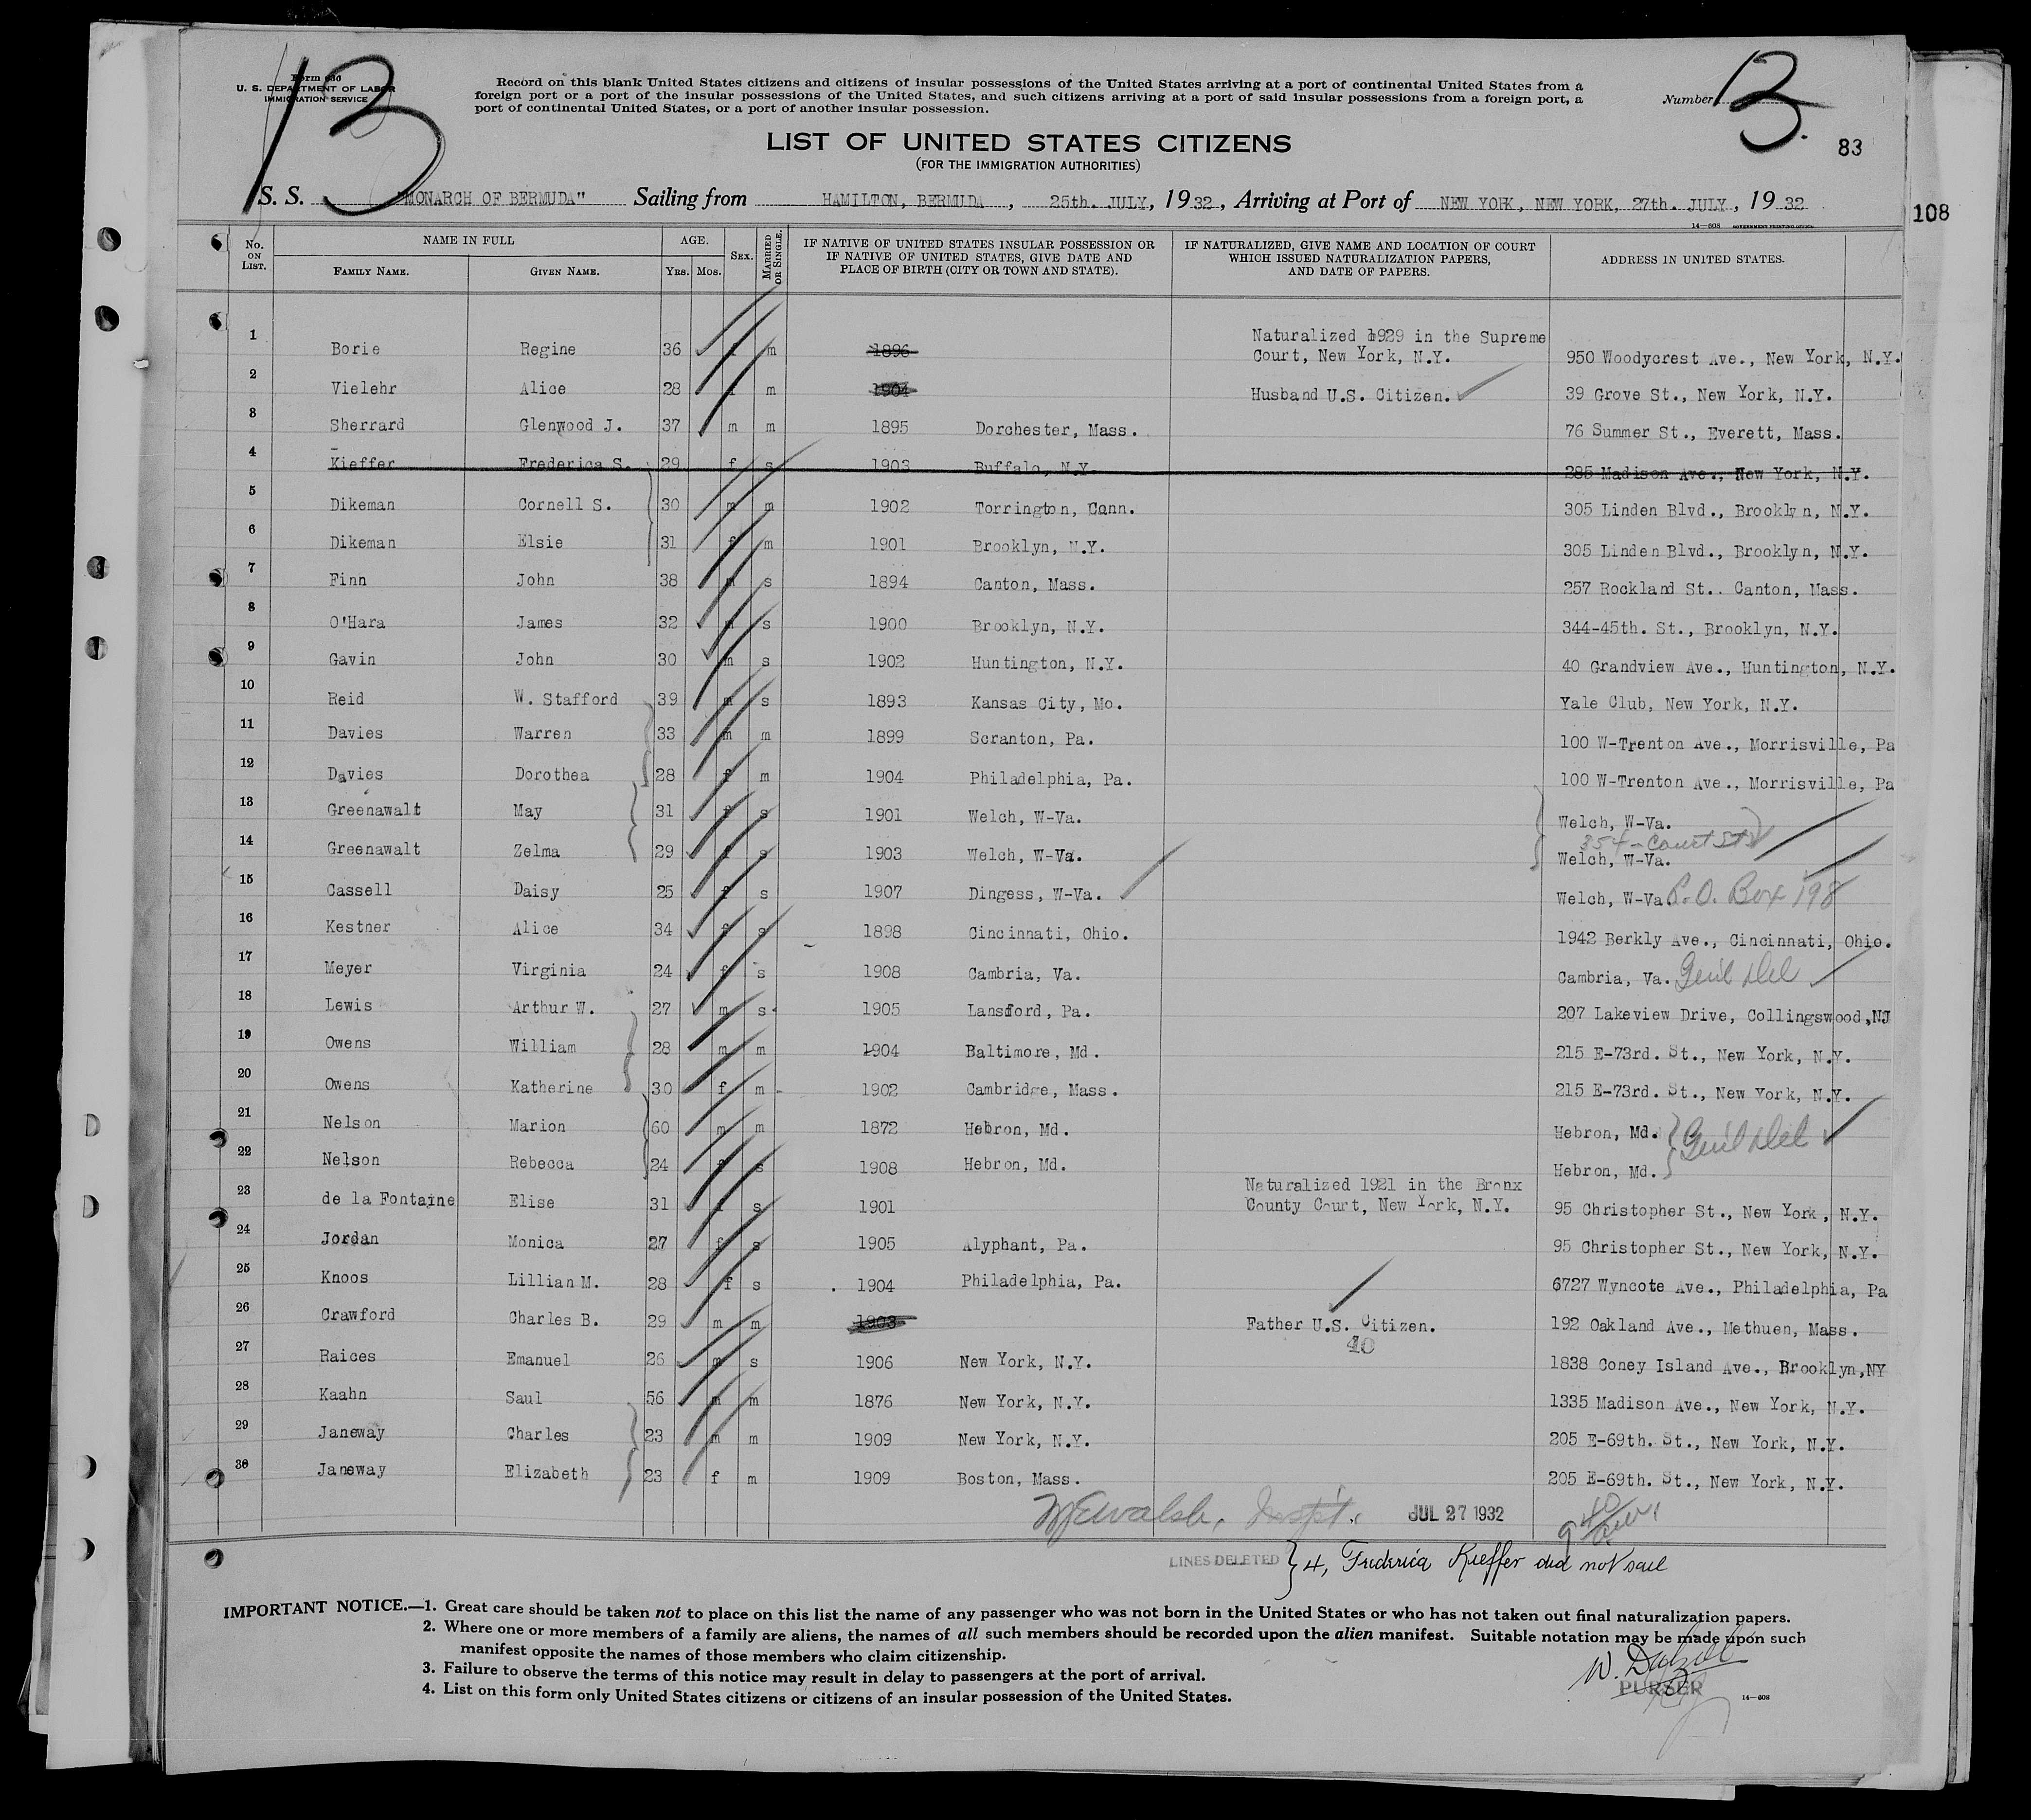 13
Form 630
U. S. DEPARTMENT OF LABOR
IMMIGRATION SERVICE
Record on this blank United States citizens and citizens of insular possessions of the United States arriving at a port of continental United States from a
foreign port or a port of the insular possessions of the United States, and such citizens arriving at a port of said insular possessions from a foreign port, a
port of continental United States, or a port of another insular possession.
Number 13.
83
108
LIST OF UNITED STATES CITIZENS
(FOR THE IMMIGRATION AUTHORITIES)
S. S. "MONARCH OF BERMUDA" Sailing from HAMILTON, BERMUDA, 25th. JULY, 1932, Arriving at Port of NEW YORK, NEW YORK, 27th. JULY, 1932
14—508 GOVERNMENT PRINTING OFFICE
No. ON LIST. NAME IN FULL AGE. SEX. MARRIED OR SINGLE. IF NATIVE OF UNITED STATES INSULAR POSSESSION OR IF NATIVE OF UNITED STATES, GIVE DATE AND PLACE OF BIRTH (CITY OR TOWN AND STATE). IF NATURALIZED, GIVE NAME AND LOCATION OF COURT WHICH ISSUED NATURALIZATION PAPERS, AND DATE OF PAPERS. ADDRESS IN UNITED STATES.
FAMILY NAME. GIVEN NAME. YRS. MOS.
1 Borie Regine 36 f m 1896 Naturalized 1929 in the Supreme Court, New York, N.Y. 950 Woodycrest Ave., New York, N.Y.
2 Vielehr Alice 28 f m 1904 Husband U.S. Citizen. 39 Grove St., New York, N.Y.
3 Sherrard Glenwood J. 37 m m 1895 Dorchester, Mass. 76 Summer St., Everett, Mass.
4 Kieffer Frederica S. 29 f s 1903 Buffalo, N.Y. 285 Madison Ave., New York, N.Y.
5 Dikeman Cornell S. 30 m m 1902 Torrington, Conn. 305 Linden Blvd., Brooklyn, N.Y.
6 Dikeman Elsie 31 f m 1901 Brooklyn, N.Y. 305 Linden Blvd., Brooklyn, N.Y.
7 Finn John 38 m s 1894 Canton, Mass. 257 Rockland St.. Canton, Mass.
8 O'Hara James 32 m s 1900 Brooklyn, N.Y. 344-45th. St., Brooklyn, N.Y.
9 Gavin John 30 m s 1902 Huntington, N.Y. 40 Grandview Ave., Huntington, N.Y.
10 Reid W. Stafford 39 m s 1893 Kansas City, Mo. Yale Club, New York, N.Y.
11 Davies Warren 33 m m 1899 Scranton, Pa. 100 W-Trenton Ave., Morrisville, Pa
12 Davies Dorothea 28 f m 1904 Philadelphia, Pa. 100 W-Trenton Ave., Morrisville, Pa
13 Greenawalt May 31 f s 1901 Welch, W-Va. Welch, W-Va.
354-Court St
14 Greenawalt Zelma 29 f s 1903 Welch, W-Va. Welch, W-Va.
15 Cassell Daisy 25 f s 1907 Dingess, W-Va. Welch, W-Va. P.O. Box 198
16 Kestner Alice 34 f s 1898 Cincinnati, Ohio. 1942 Berkly Ave., Cincinnati, Ohio.
17 Meyer Virginia 24 f s 1908 Cambria, Va. Cambria, Va. Gen'l Del
18 Lewis Arthur W. 27 m s 1905 Lansford, Pa. 207 Lakeview Drive, Collingswood,NJ
19 Owens William 28 m m 1904 Baltimore, Md. 215 E-73rd. St., New York, N.Y.
20 Owens Katherine 30 f m 1902 Cambridge, Mass. 215 E-73rd. St., New York, N.Y.
21 Nelson Marion 60 m m 1872 Hebron, Md. Hebron, Md. Gen'l Del
22 Nelson Rebecca 24 f s 1908 Hebron, Md. Hebron, Md.
23 de la Fontaine Elise 31 f s 1901 Naturalized 1921 in the Bronx County Court, New York, N.Y. 95 Christopher St., New York, N.Y.
24 Jordan Monica 27 f s 1905 Alyphant, Pa. 95 Christopher St., New York, N.Y.
25 Knoos Lillian M. 28 f s 1904 Philadelphia, Pa. 6727 Wyncote Ave., Philadelphia, Pa
26 Crawford Charles B. 29 m m 1903 Father U.S. Citizen. 192 Oakland Ave., Methuen, Mass.
40
27 Raices Emanuel 26 m s 1906 New York, N.Y. 1838 Coney Island Ave., Brooklyn,NY
28 Kaahn Saul 56 m m 1876 New York, N.Y. 1335 Madison Ave., New York, N.Y.
29 Janeway Charles 23 m m 1909 New York, N.Y. 205 E-69th. St., New York, N.Y.
30 Janeway Elizabeth 23 f m 1909 Boston, Mass. 205 E-69th. St., New York, N.Y.
Walsh, Inspt. JUL 27 1932
LINES DELETED } 4, Frederica Kieffer did not sail
IMPORTANT NOTICE.—1. Great care should be taken not to place on this list the name of any passenger who was not born in the United States or who has not taken out final naturalization papers.
2. Where one or more members of a family are aliens, the names of all such members should be recorded upon the alien manifest. Suitable notation may be made upon such
manifest opposite the names of those members who claim citizenship.
3. Failure to observe the terms of this notice may result in delay to passengers at the port of arrival.
4. List on this form only United States citizens or citizens of an insular possession of the United States.
W. Dalzell
PURSER
14—508